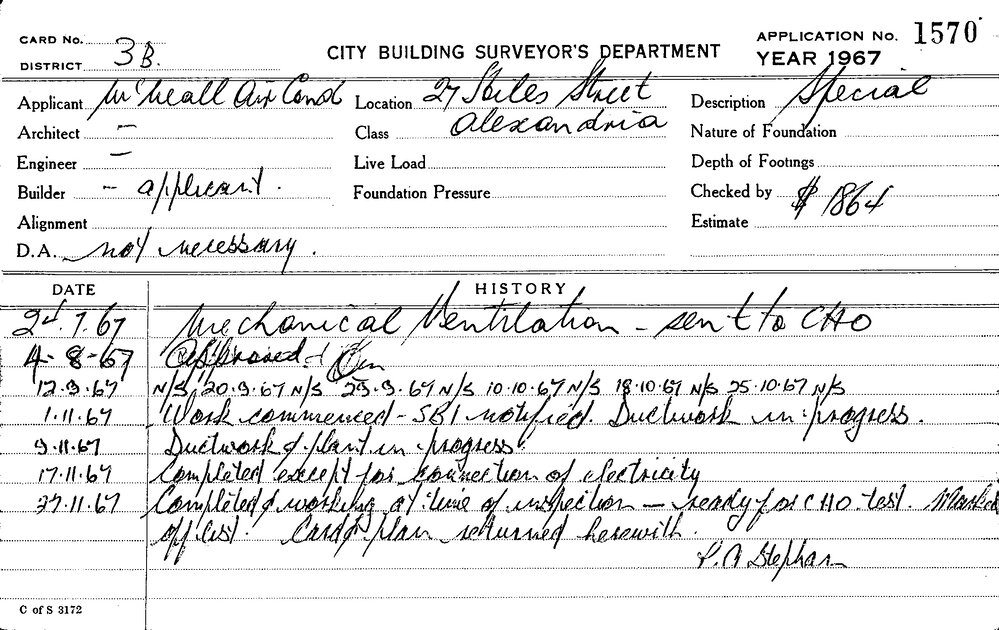 CARD No.
DISTRICT 3B.
CITY BUILDING SURVEYOR'S DEPARTMENT
APPLICATION No. 1570
YEAR 1967
Applicant McNeall Air Cond
Location 27 Stiles Street
Alexandria
Description Special
Architect —
Class
Nature of Foundation
Engineer —
Live Load
Depth of Footings
Builder — applicant.
Foundation Pressure
Checked by
Alignment
Estimate $ 1864
D.A. not necessary.
DATE HISTORY
7.67 Mechanical Ventilation - sent to CHO
4-8-67 Approved
12.9.67 N/S, 20.9.67 N/S 29.9.67 N/S 10.10.67 N/S 18.10.67 N/S 25.10.67 N/S
1.11.67 Work commenced - SBI notified. Ductwork in progress.
9.11.67 Ductwork & plant in progress
17.11.67 Completed except for connection of electricity
27.11.67 Completed & working at time of inspection — ready for CHO test. Marked
off list. Card & plan returned herewith.
Stephan
C of S 3172